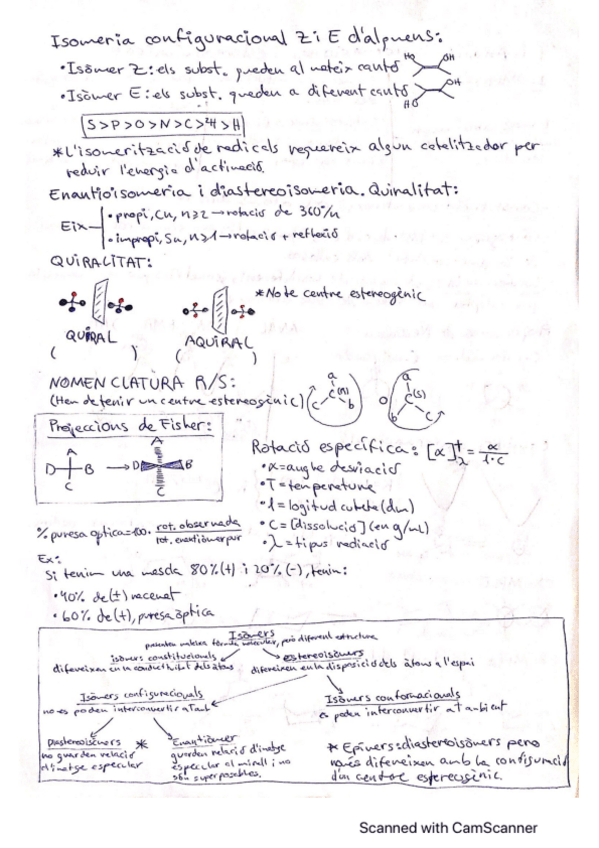 Isomeria configuracional Z i E d'alquens:
• Isòmer Z: els subst. queden al mateix cantó HO OH
• Isòmer E: els subst. queden a diferent cantó OH
HO
S>P>O>N>C>²H>H
*L'isomerització de radicals requereix algun catalitzador per
reduir l'energia d'activació.
Enantioisomeria i diastereoisomeria. Quiralitat:
Eix
• propi, Cn, n≥2 → rotació de 360°/n
• impropi, Sn, n≥1 → rotació + reflexió
QUIRALITAT:
*No te centre estereogènic
QUIRAL AQUIRAL
( ) ( )
NOMENCLATURA R/S:
(Han de tenir un centre estereogènic)
a (R) c b o a (S) b c
Projeccions de Fisher:
A A
D B → D B
C C
Rotació específica: [α]ᵀλ = α/l·c
• α = angle desviació
• T = temperatura
• l = logitud cubeta (dm)
• C = [dissolució] (en g/mL)
• λ = tipus radiació
% puresa optica = 100 · rot. observada
rot. enantiòmer pur
Ex:
Si tenim una mescla 80% (+) i 20% (-), tenim:
• 40% de (±) racemat
• 60% de (+), puresa òptica
Isòmers
presenten mateixa fórmula molecular, però diferent estructura
isòmers constitucionals estereoisòmers
difereixen en la connectivitat dels àtoms difereixen en la disposició dels àtoms a l'espai
Isòmers configuracionals Isòmers conformacionals
no es poden interconvertir a T amb es poden interconvertir a T ambient
Diastereoisòmers * Enantiòmer
no guarden relació guarden relació d'imatge
d'imatge especular especular al mirall i no
són superposables.
* Epímers: diastereoisòmers però
només difereixen amb la configuració
d'un centre estereogènic.
Scanned with CamScanner